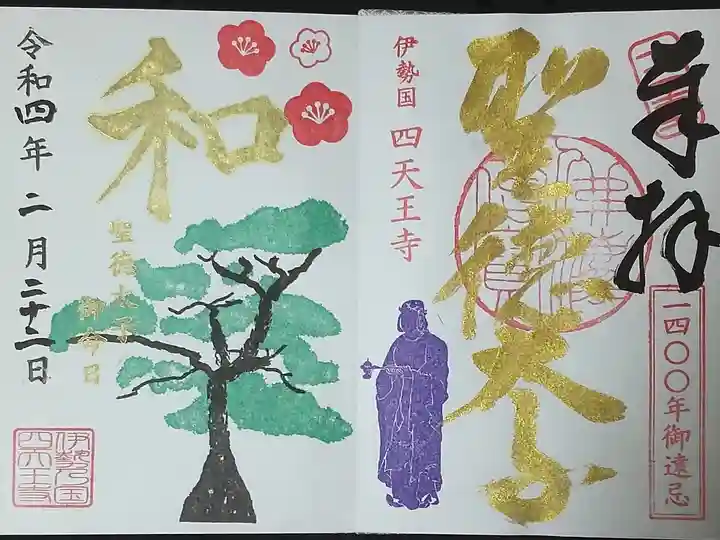 奉拝
一四〇〇年御遠忌
聖徳太子
佛法僧寶
伊勢国 四天王寺
和
聖徳太子
御命日
令和四年二月二十二日
伊勢国
四天王寺